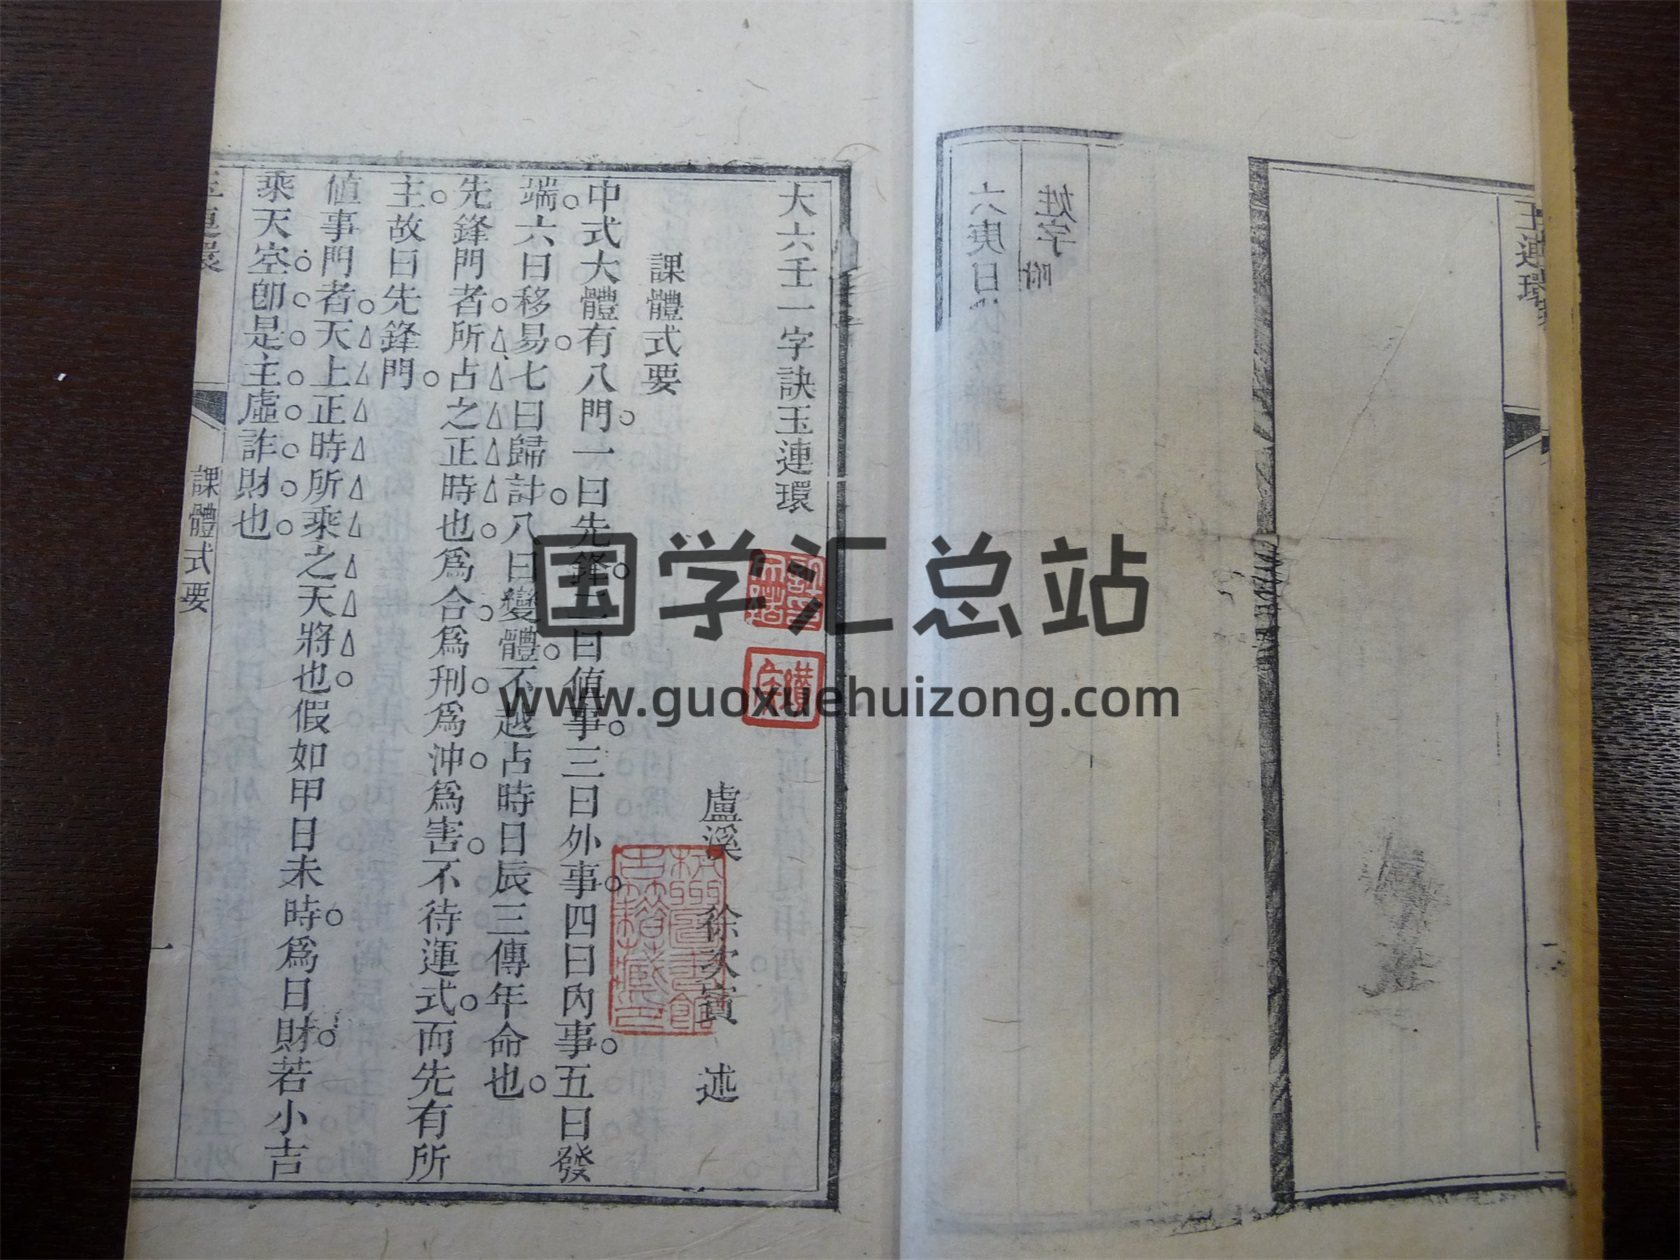 大六壬一字訣玉連環
盧溪 徐次賓 述
課體式要
中式大體有八門一曰先鋒二曰值事三曰外事四曰內事五曰發
端六曰移易七曰歸計八曰變體不越占時日辰三傳年命也
先鋒門者所占之正時也為合為刑為沖為害不待運式而先有所
主故曰先鋒門
值事門者天上正時所乘之天將也假如甲日未時為日財若小吉
乘天空卽是主虛詐財也
課體式要
一
玉連環
姓字附
六庚日
国学汇总站
www.guoxuehuizong.com